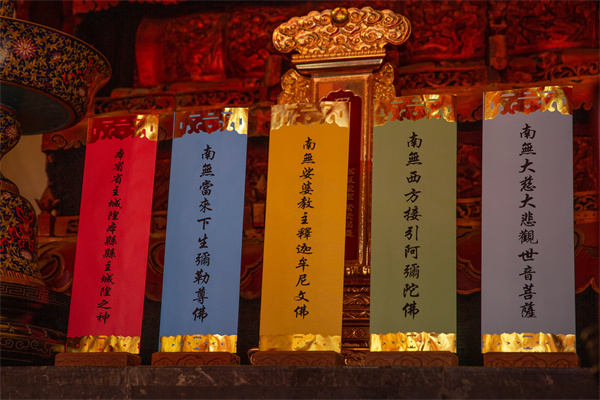 南無大慈大悲觀世音菩薩
南無西方接引阿彌陀佛
南無娑婆教主釋迦牟尼文佛
南無當來下生彌勒尊佛
夲省省主城隍夲縣縣主城隍之神